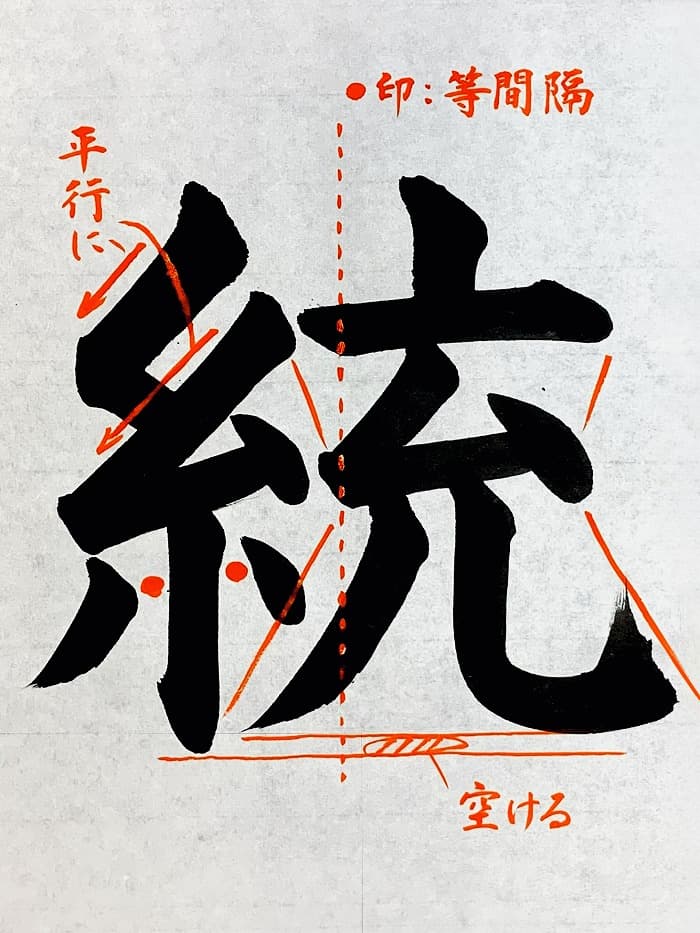 ●印：等間隔
平行に
統
空ける